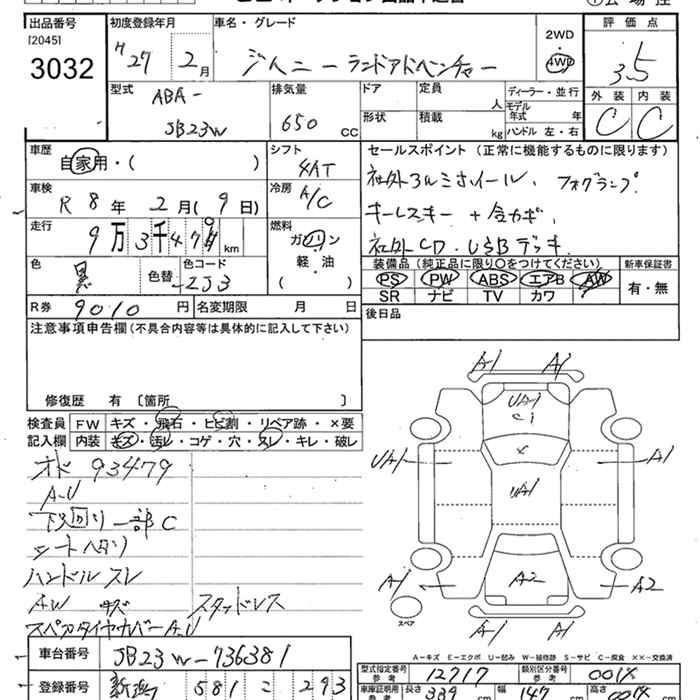 出品番号 初度登録年月 車名・グレード 2WD 評価点
[2045]
3032 H27 2月 ジムニー ランドアドベンチャー 4WD 3.5
型式 排気量 ドア 定員 ディーラー・並行 外装 内装
ABA- 人 モデル年式 年
JB23W 650 CC 形状 積載 kg ハンドル 左・右 C C
車歴 シフト セールスポイント (正常に機能するものに限ります)
自家用・( ) 4AT
車検 冷房 社外アルミホイール、フォグランプ
R8年 2月(9日) A/C
走行 燃料 キーレスキー+合カギ、
9万3千479km ガソリン 社外CD・USBデッキ
軽・油
色 色替 色コード ( ) 装備品 (純正品に限り○をつけてください) 新車保証書
黒 ZJ3 PS PW ABS エアB AW 有・無
SR ナビ TV カワ
R券 9010円 名変期限 月 日 後日品
注意事項申告欄(不具合内容等は具体的に記入して下さい)
修復歴 有 〔箇所 〕
検査員 FW キズ・飛石・ヒビ割・リペア跡・×要
記入欄 内装 キズ・汚レ・コゲ・穴・スレ・キレ・破レ
オド 93479
A.U
下回り一部C
シートヘタリ
ハンドルスレ
AW キズ スタッドレス
スペアタイヤカバーA.U
A1 A1
UA1
C1
×
UA1 UA1 A1
A1 A2 A2
スペア
A1 A1
A-キズ E-エクボ U-凹み W-補修跡 S-サビ C-腐食 ××-交換済
車台番号 JB23W-736381
型式指定番号 参考 12717 類別区分番号 参考 001X
登録番号 新潟 581 こ 293
車庫証明用 参考 長さ 339 cm 幅 147 cm 高さ